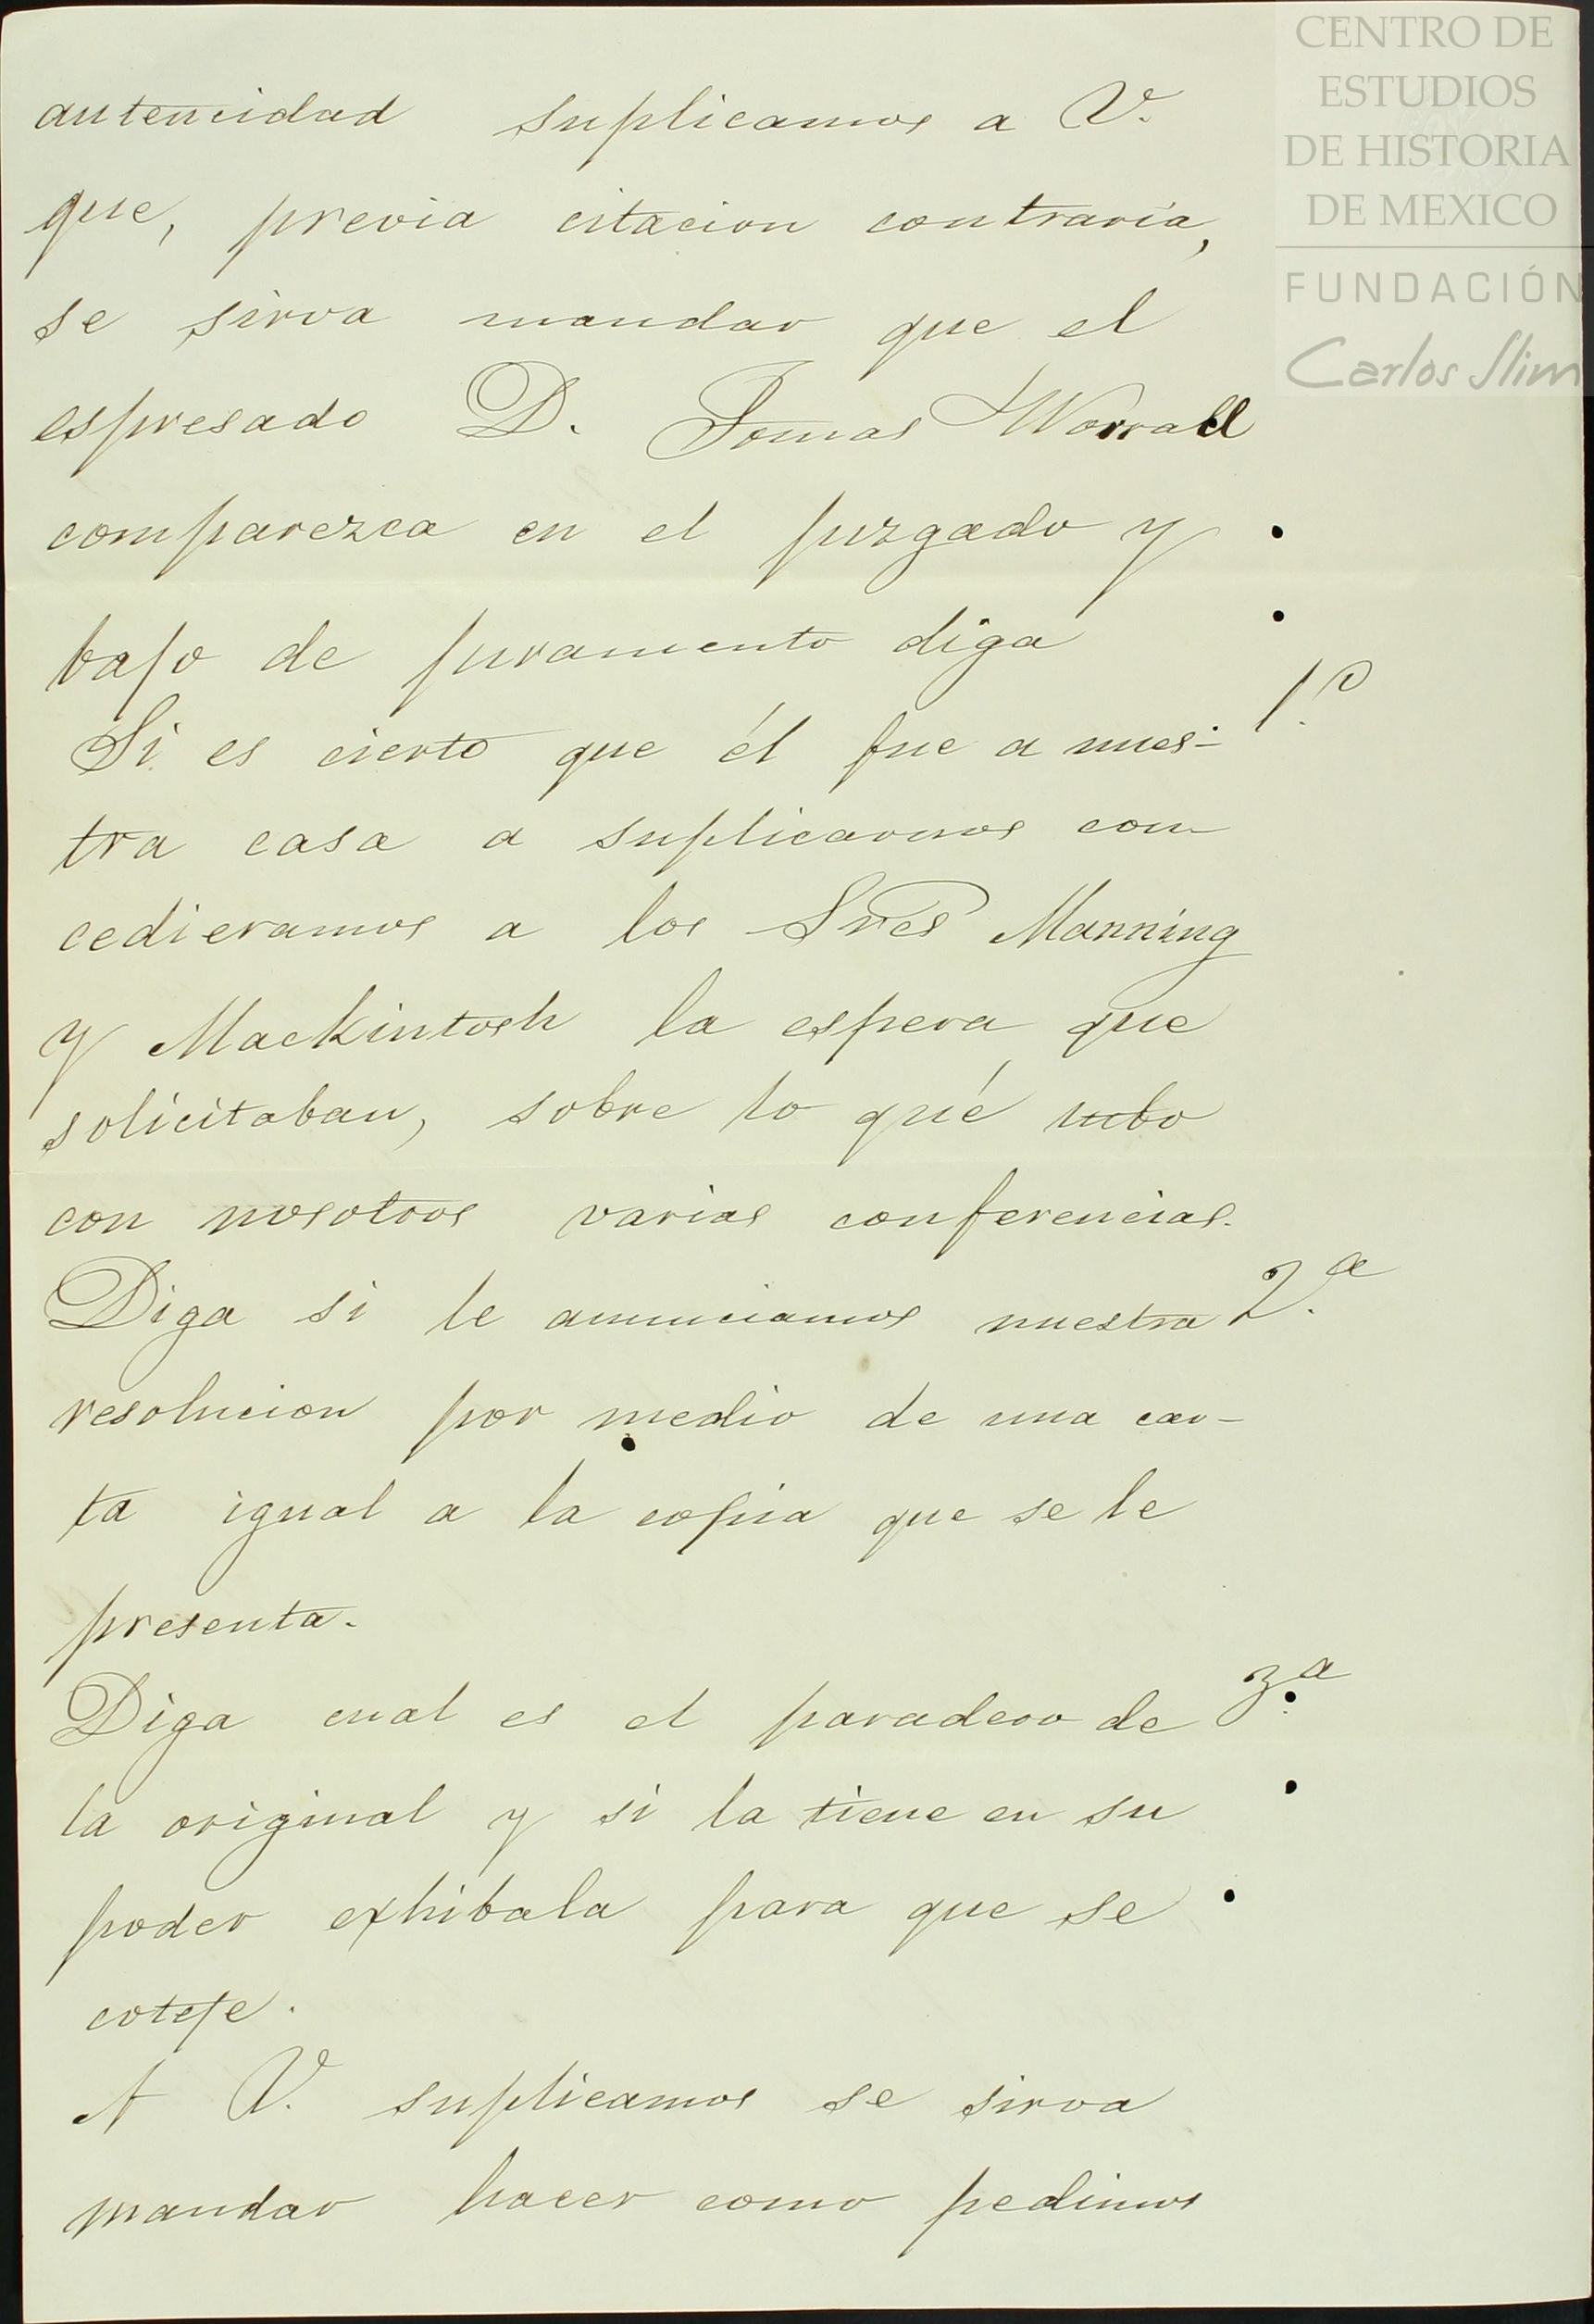 CENTRO DE
ESTUDIOS
DE HISTORIA
DE MEXICO
FUNDACIÓN
Carlos Slim
autencidad suplicamos a V.
que, previa citacion contraria,
se sirva mandar que el
espresado D. Tomas Worrall
comparezca en el juzgado y
bajo de juramento diga
Si es cierto que él fue a nues- 1.º
tra casa a suplicarnos con
cedieramos a los Sres Manning
y Mackintosh la espera que
solicitaban, sobre lo qué tubo
con nosotros varias conferencias.
Diga si le anunciamos nuestra 2.ª
resolucion por medio de una car-
ta igual a la copia que se le
presenta.
Diga cual es el paradero de 3.ª
la original y si la tiene en su
poder exhibala para que se
coteje.
A V. suplicamos se sirva
mandar hacer como pedimos